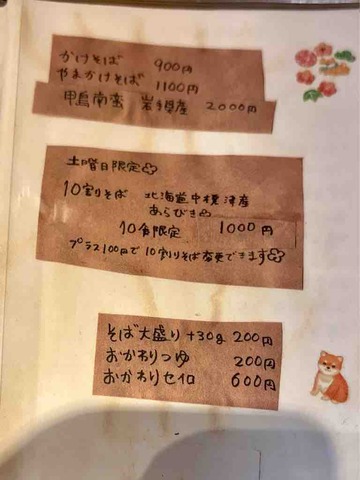 かけそば 900円
やまかけそば 1100円
甲鳥南蛮 岩手県産 2000円
土曜日限定
10割りそば 北海道中標津産
あらびき
10食限定 1000円
プラス100円で10割りそば変更できます
そば大盛り +30g 200円
おかわりつゆ 200円
おかわりセイロ 600円